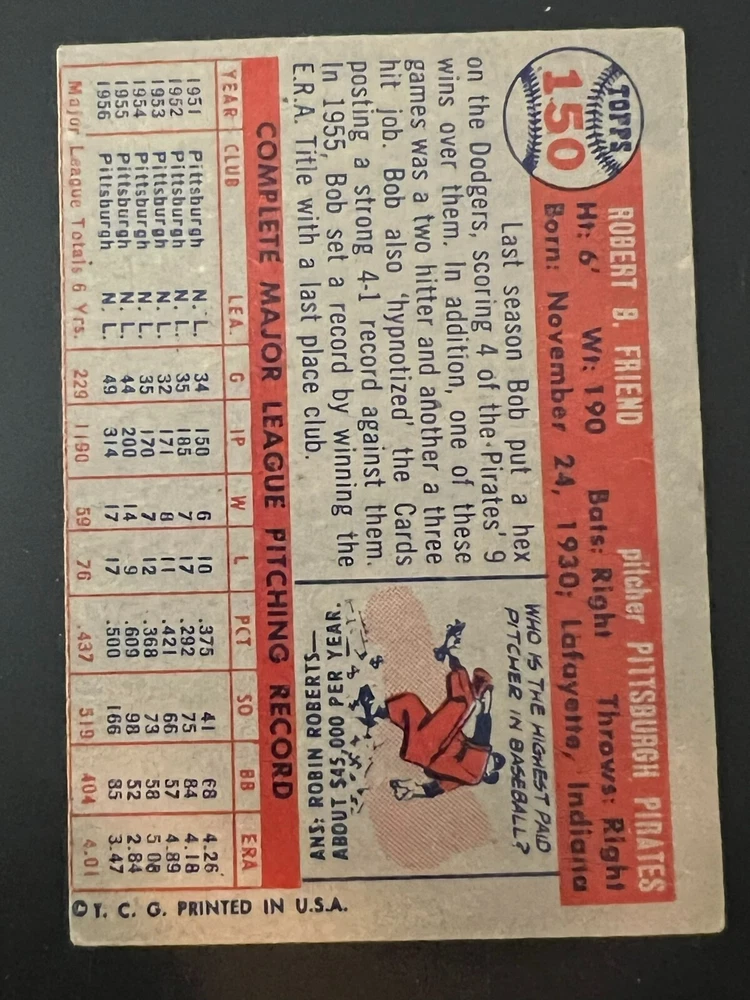 TOPPS
150
ROBERT B. FRIEND pitcher PITTSBURGH PIRATES
Ht: 6' Wt: 190 Bats: Right Throws: Right
Born: November 24, 1930; Lafayette, Indiana
Last season Bob put a hex
on the Dodgers, scoring 4 of the Pirates' 9
wins over them. In addition, one of these
games was a two hitter and another a three
hit job. Bob also 'hypnotized' the Cards
posting a strong 4-1 record against them.
In 1955, Bob set a record by winning the
E.R.A. Title with a last place club.
WHO IS THE HIGHEST PAID
PITCHER IN BASEBALL?
ANS: ROBIN ROBERTS—
ABOUT $45,000 PER YEAR.
COMPLETE MAJOR LEAGUE PITCHING RECORD
YEAR CLUB LEA. G IP W L PCT SO BB ERA
1951 Pittsburgh N. L. 34 150 6 10 .375 41 68 4.26
1952 Pittsburgh N. L. 35 185 7 17 .292 75 84 4.18
1953 Pittsburgh N. L. 32 171 8 11 .421 66 57 4.89
1954 Pittsburgh N. L. 35 170 7 12 .368 73 58 5.08
1955 Pittsburgh N. L. 44 200 14 9 .609 98 52 2.84
1956 Pittsburgh N. L. 49 314 17 17 .500 166 85 3.47
Major League Totals 6 Yrs. 229 1190 59 76 .437 519 404 4.01
© T. C. G. PRINTED IN U.S.A.